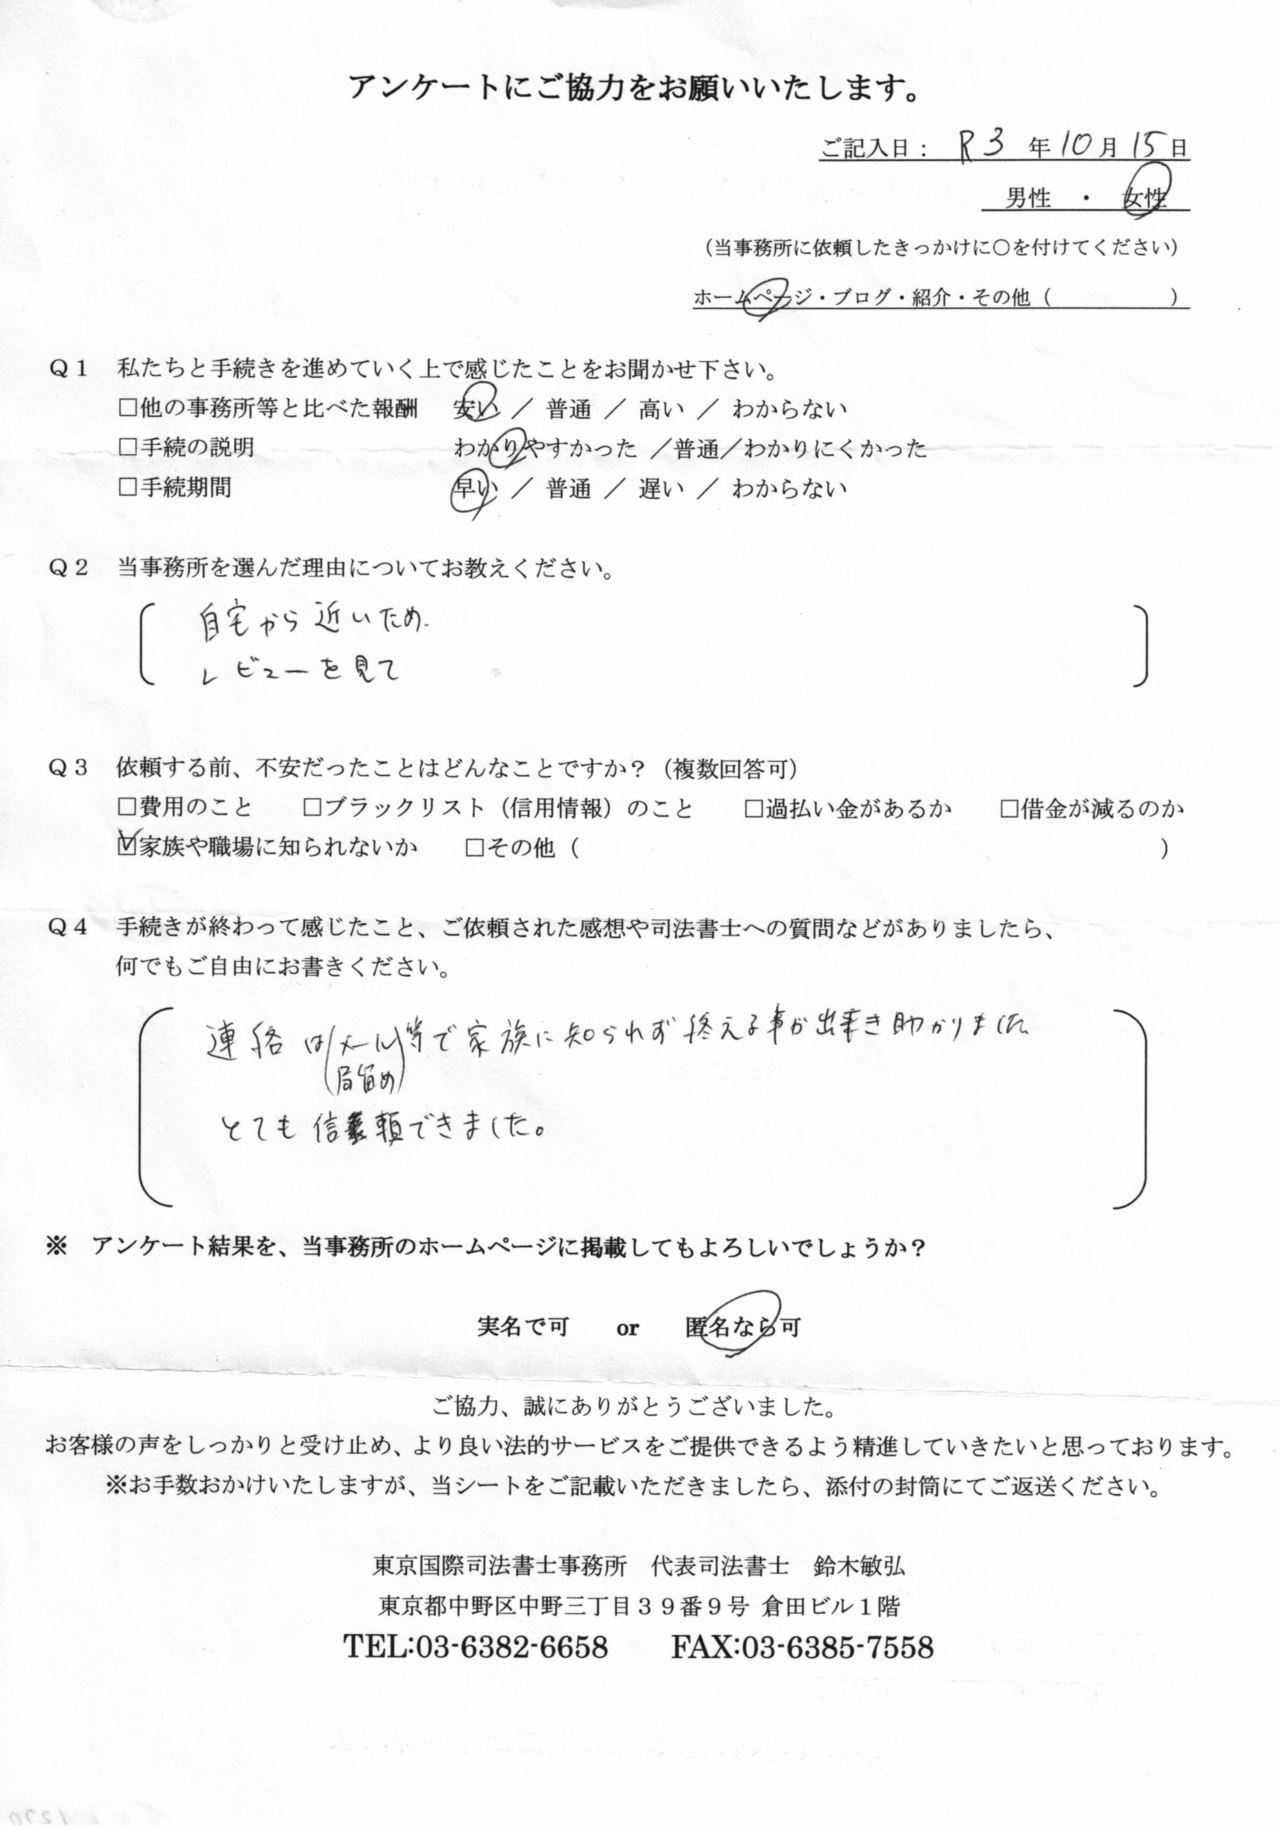 アンケートにご協力をお願いいたします。
ご記入日： R3 年 10 月 15 日
男性 ・ 女性
（当事務所に依頼したきっかけに○を付けてください）
ホームページ・ブログ・紹介・その他（ ）
Ｑ１ 私たちと手続きを進めていく上で感じたことをお聞かせ下さい。
□他の事務所等と比べた報酬 安い ／ 普通 ／ 高い ／ わからない
□手続の説明 わかりやすかった ／普通／わかりにくかった
□手続期間 早い ／ 普通 ／ 遅い ／ わからない
Ｑ２ 当事務所を選んだ理由についてお教えください。
自宅から近いため.
レビューを見て
Ｑ３ 依頼する前、不安だったことはどんなことですか？（複数回答可）
□費用のこと □ブラックリスト（信用情報）のこと □過払い金があるか □借金が減るのか
☑家族や職場に知られないか □その他（ ）
Ｑ４ 手続きが終わって感じたこと、ご依頼された感想や司法書士への質問などがありましたら、
何でもご自由にお書きください。
連絡は(メール 局留め)等で家族に知られず終える事が出来き助かりました
とても信頼できました。
※ アンケート結果を、当事務所のホームページに掲載してもよろしいでしょうか？
実名で可 or 匿名なら可
ご協力、誠にありがとうございました。
お客様の声をしっかりと受け止め、より良い法的サービスをご提供できるよう精進していきたいと思っております。
※お手数おかけいたしますが、当シートをご記載いただきましたら、添付の封筒にてご返送ください。
東京国際司法書士事務所 代表司法書士 鈴木敏弘
東京都中野区中野三丁目３９番９号 倉田ビル１階
TEL:03-6382-6658 FAX:03-6385-7558